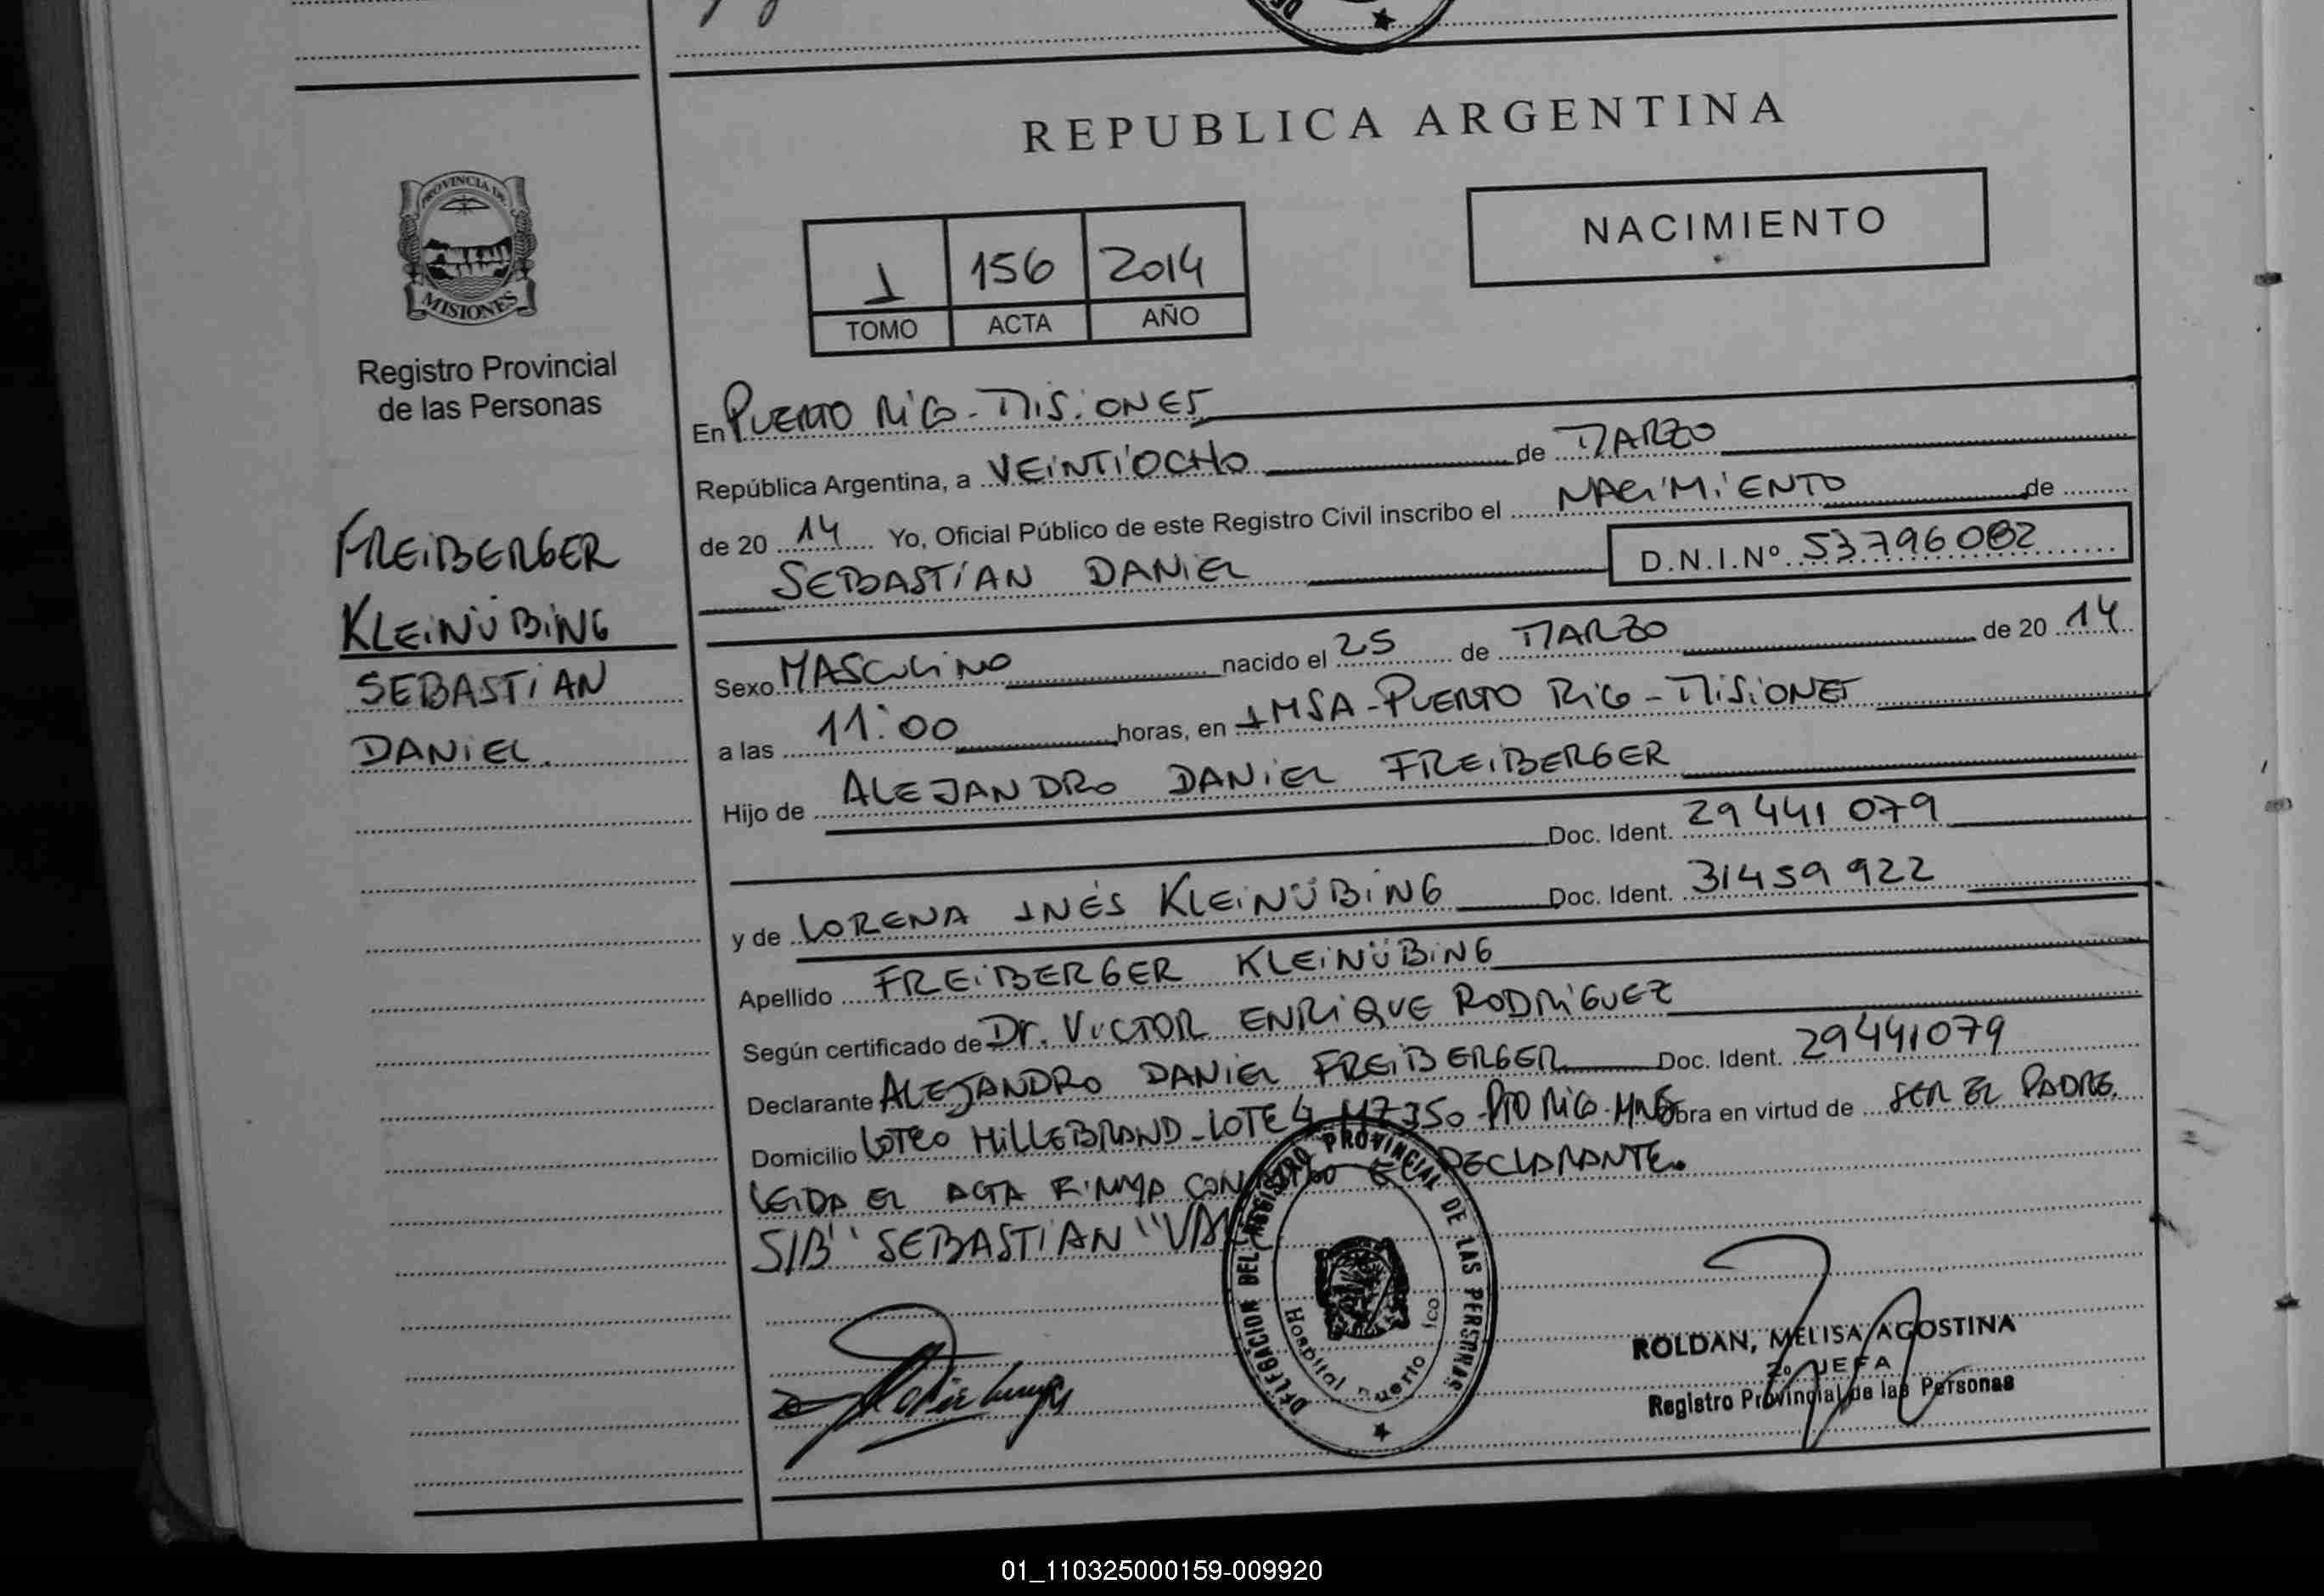 REPUBLICA ARGENTINA
PROVINCIA DE
MISIONES
Registro Provincial
de las Personas
NACIMIENTO
1 156 2014
TOMO ACTA AÑO
FREIBERGER
KLEINÜBING
SEBASTIAN
DANIEL.
En PUERTO RICO - MISIONES
República Argentina, a VEINTIOCHO de MARZO
de 20 14 Yo, Oficial Público de este Registro Civil inscribo el NACIMIENTO de
SEBASTIAN DANIEL D.N.I.Nº 53796082
Sexo MASCULINO nacido el 25 de MARZO de 20 14
a las 11:00 horas, en IMSA - PUERTO RICO - MISIONES
Hijo de ALEJANDRO DANIEL FREIBERGER
Doc. Ident. 29441079
y de LORENA INÉS KLEINÜBING Doc. Ident. 31459922
Apellido FREIBERGER KLEINÜBING
Según certificado de Dr. VICTOR ENRIQUE RODRIGUEZ
Declarante ALEJANDRO DANIEL FREIBERGER Doc. Ident. 29441079
Domicilio LOTEO HILLEBRAND - LOTE 4 MZ 350 - PTO RICO - MNES obra en virtud de SER EL PADRE.
LEIDA EL ACTA FIRMA CONMIGO EL DECLARANTE.
S/B "SEBASTIAN" VALE
DELEGACION DEL REGISTRO PROVINCIAL DE LAS PERSONAS
Hospital Puerto ico
ROLDAN, MELISA AGOSTINA
2º JEFA
Registro Provincial de las Personas
01_110325000159-009920